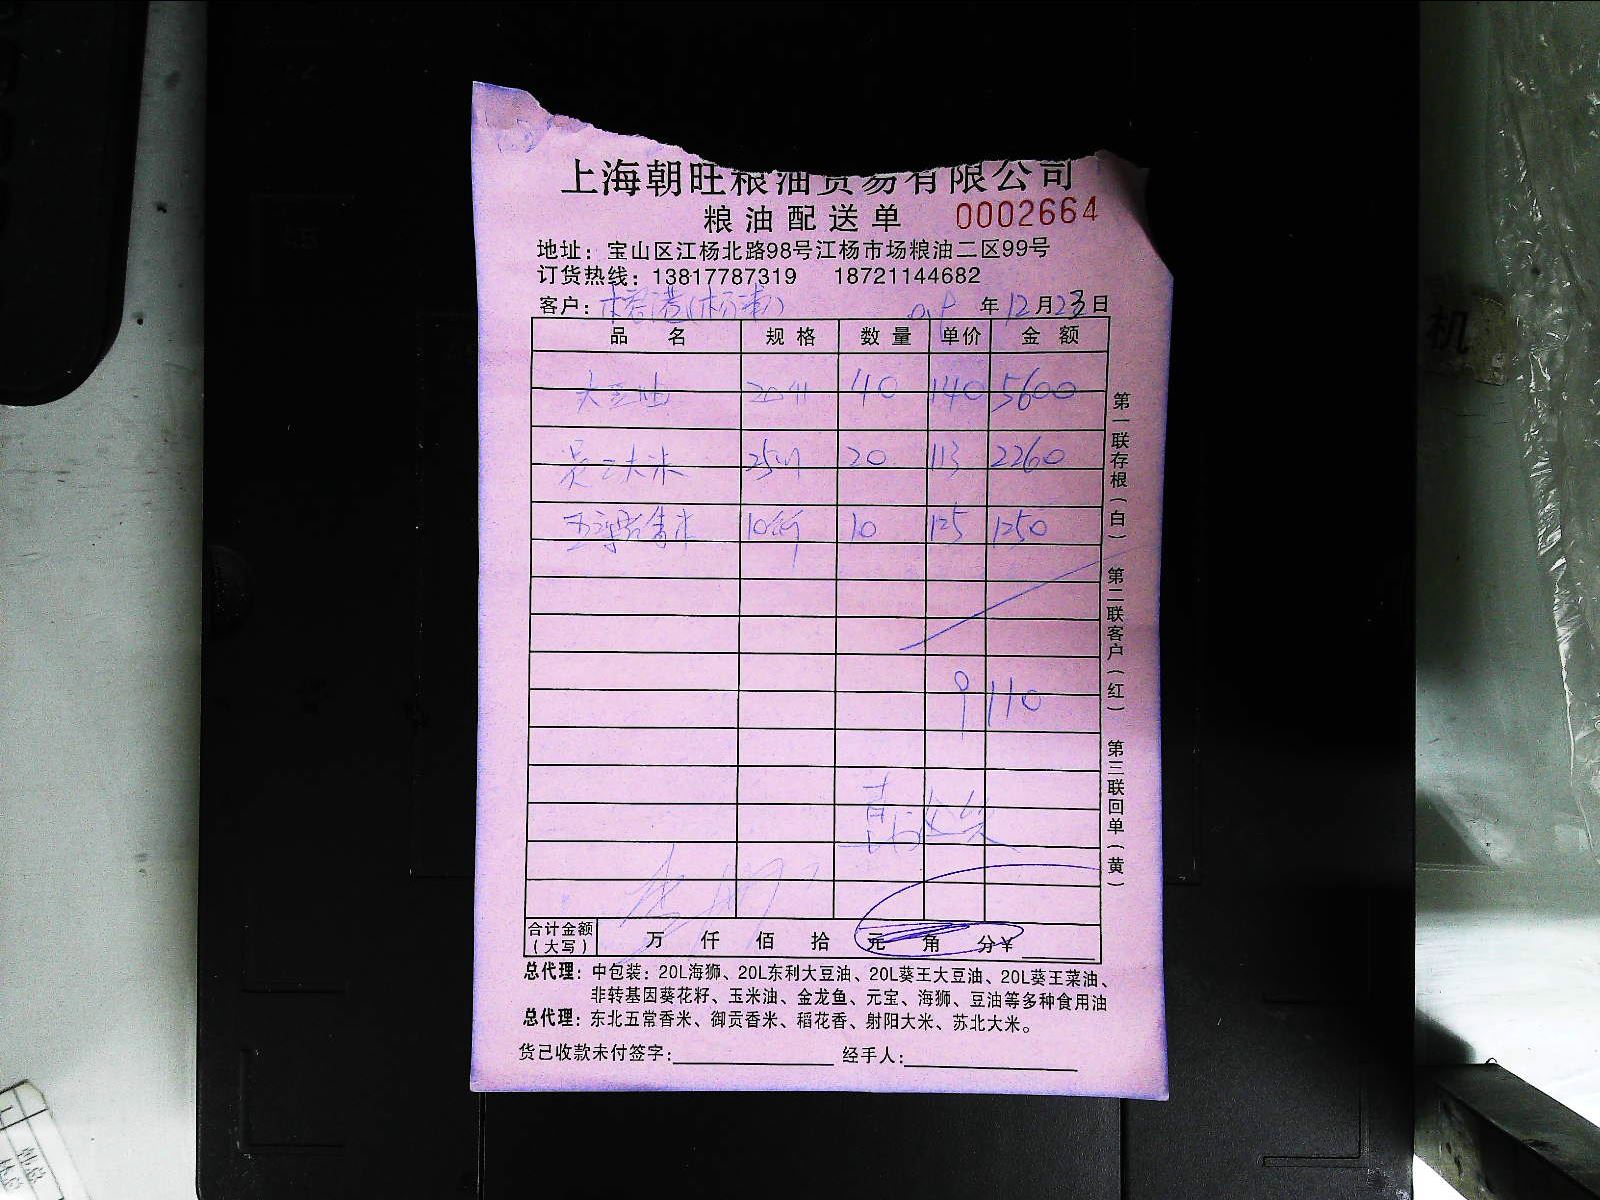 上海朝旺粮油贸易有限公司
粮油配送单 0002664
地址：宝山区江杨北路98号江杨市场粮油二区99号
订货热线：13817787319 18721144682
客户： 年12月23日
品 名 规 格 数 量 单价 金 额
大豆油 40 140 5600
大米 20 113 2260
10斤 10 125 1250
9110
合计金额（大写） 万 仟 佰 拾 元 角 分¥
总代理：中包装：20L海狮、20L东利大豆油、20L葵王大豆油、20L葵王菜油、
非转基因葵花籽、玉米油、金龙鱼、元宝、海狮、豆油等多种食用油
总代理：东北五常香米、御贡香米、稻花香、射阳大米、苏北大米。
货已收款未付签字： 经手人：
第一联存根（白） 第二联客户（红） 第三联回单（黄）
机